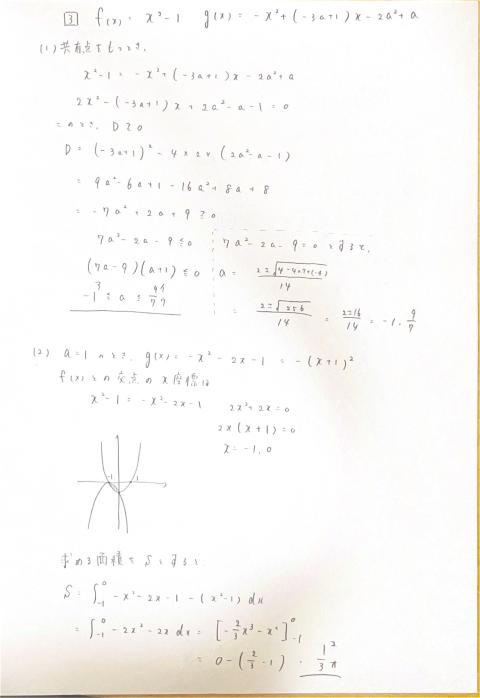 3 f(x) = x²-1 g(x) = -x²+(-3a+1)x-2a²+a
(1) 共有点をもつとき、
x²-1 = -x²+(-3a+1)x-2a²+a
2x²-(-3a+1)x+2a²-a-1=0
このとき、D≧0
D = (-3a+1)²-4×2×(2a²-a-1)
= 9a²-6a+1-16a²+8a+8
= -7a²+2a+9≧0
7a²-2a-9≦0
(7a-9)(a+1)≦0
-1≦a≦9/7
7a²-2a-9=0とすると、
a = 2±√(4-4×7×(-9)) / 14
= 2±√256 / 14 = 2±16 / 14 = -1, 9/7
(2) a=1のとき、g(x) = -x²-2x-1 = -(x+1)²
f(x)との交点のx座標は
x²-1 = -x²-2x-1
2x²+2x=0
2x(x+1)=0
x=-1, 0
-1 1
求める面積をSとすると
S = ∫₋₁⁰ -x²-2x-1-(x²-1) dx
= ∫₋₁⁰ -2x²-2x dx = [-2/3x³-x²]₋₁⁰
= 0-(2/3-1) = 1/3